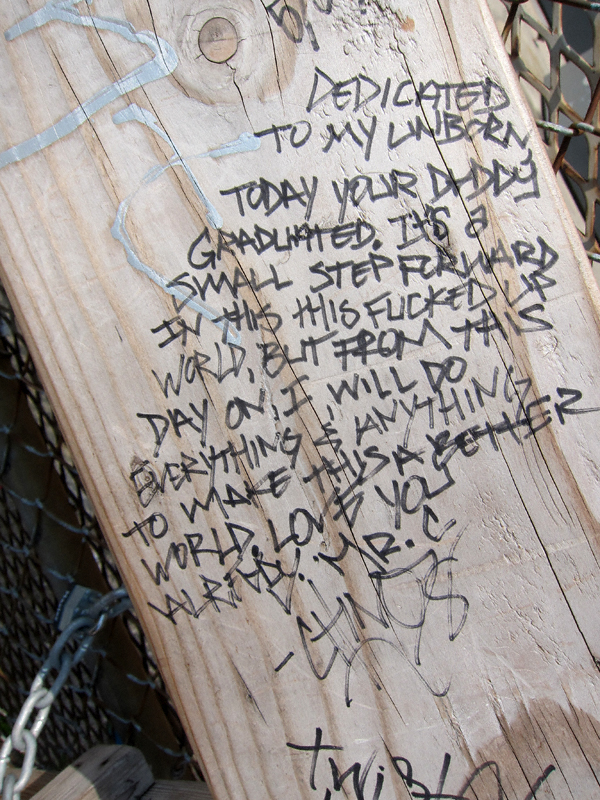 DEDICATED
TO MY UNBORN
TODAY YOUR DADDY
GRADUATED. IT'S A
SMALL STEP FORWARD
IN THIS THIS FUCKED UP
WORLD, BUT FROM THIS
DAY ON, I WILL DO
EVERYTHING & ANYTHING
TO MAKE THIS A BETTER
WORLD. LOVE YOU
ALREADY. MR. C